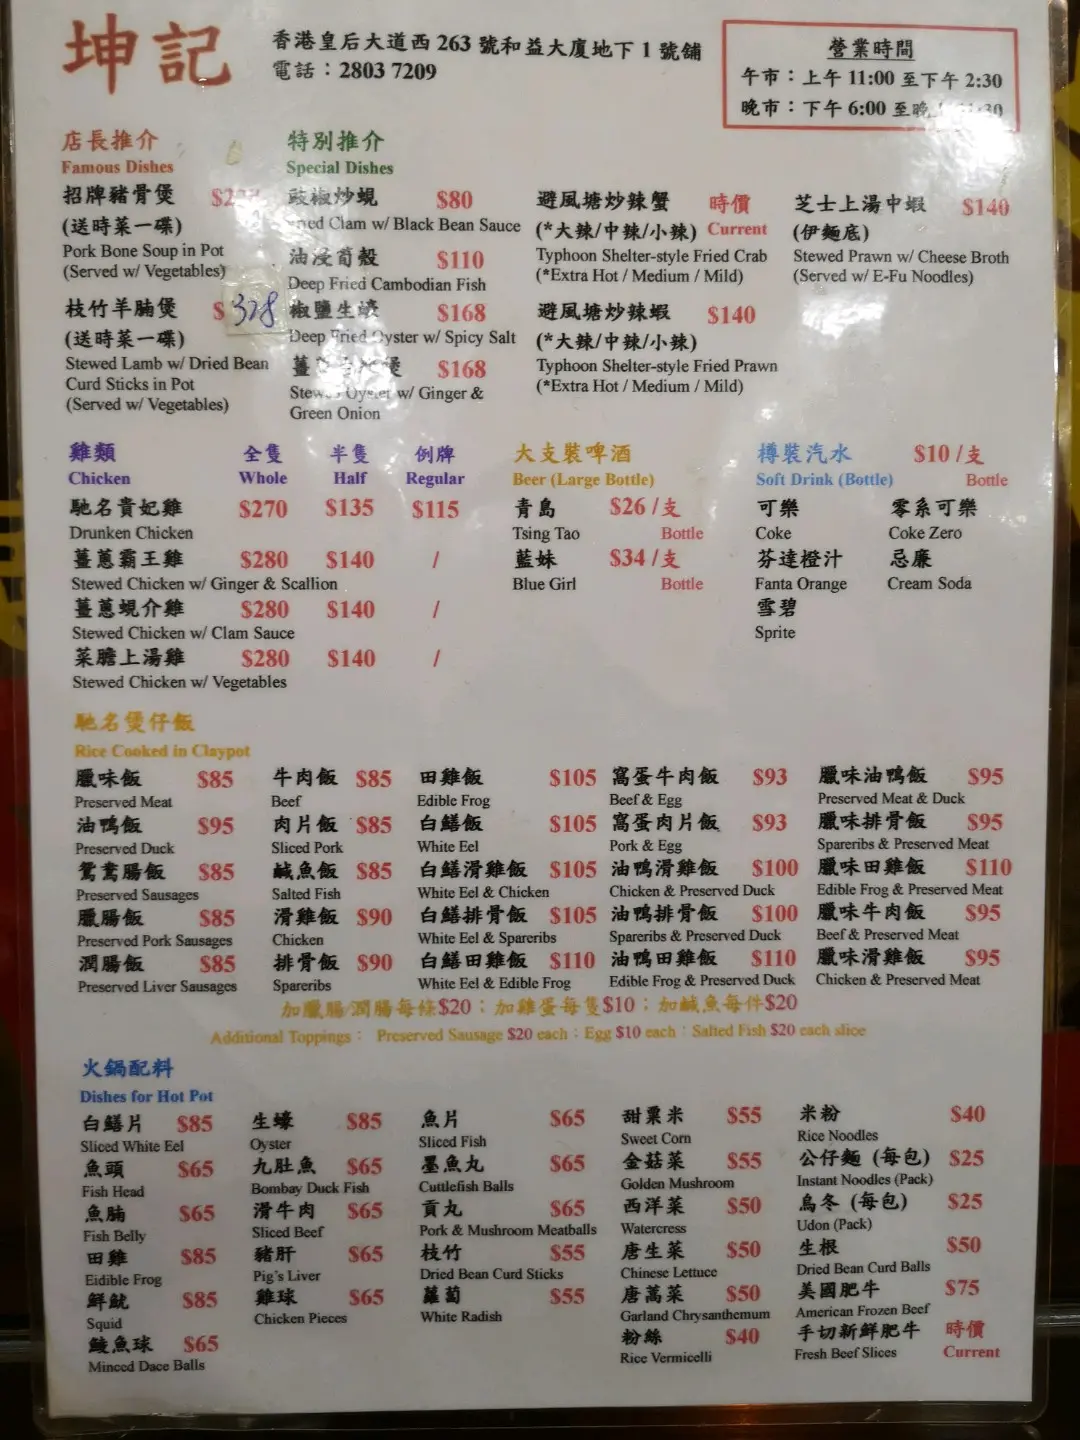 坤記
香港皇后大道西 263 號和益大廈地下 1 號舖
電話：2803 7209
營業時間
午市：上午 11:00 至下午 2:30
晚市：下午 6:00 至晚
店長推介
Famous Dishes
招牌豬骨煲
(送時菜一碟)
Pork Bone Soup in Pot
(Served w/ Vegetables)
枝竹羊腩煲 $ 328
(送時菜一碟)
Stewed Lamb w/ Dried Bean
Curd Sticks in Pot
(Served w/ Vegetables)
特別推介
Special Dishes
豉椒炒蜆 $80
Clam w/ Black Bean Sauce
油浸荀殼 $110
Deep Fried Cambodian Fish
椒鹽生蠔 $168
Deep Fried Oyster w/ Spicy Salt
薑 煲 $168
Oyster w/ Ginger &
Green Onion
避風塘炒辣蟹 時價
(*大辣/中辣/小辣) Current
Typhoon Shelter-style Fried Crab
(*Extra Hot / Medium / Mild)
避風塘炒辣蝦 $140
(*大辣/中辣/小辣)
Typhoon Shelter-style Fried Prawn
(*Extra Hot / Medium / Mild)
芝士上湯中蝦 $140
(伊麵底)
Stewed Prawn w/ Cheese Broth
(Served w/ E-Fu Noodles)
雞類 全隻 半隻 例牌
Chicken Whole Half Regular
馳名貴妃雞 $270 $135 $115
Drunken Chicken
薑蔥霸王雞 $280 $140 /
Stewed Chicken w/ Ginger & Scallion
薑蔥蜆介雞 $280 $140 /
Stewed Chicken w/ Clam Sauce
菜膽上湯雞 $280 $140 /
Stewed Chicken w/ Vegetables
大支裝啤酒
Beer (Large Bottle)
青島 $26 /支
Tsing Tao Bottle
藍妹 $34 /支
Blue Girl Bottle
樽裝汽水 $10 /支
Soft Drink (Bottle) Bottle
可樂 零系可樂
Coke Coke Zero
芬達橙汁 忌廉
Fanta Orange Cream Soda
雪碧
Sprite
馳名煲仔飯
Rice Cooked in Claypot
臘味飯 $85 牛肉飯 $85 田雞飯 $105 窩蛋牛肉飯 $93 臘味油鴨飯 $95
Preserved Meat Beef Edible Frog Beef & Egg Preserved Meat & Duck
油鴨飯 $95 肉片飯 $85 白鱔飯 $105 窩蛋肉片飯 $93 臘味排骨飯 $95
Preserved Duck Sliced Pork White Eel Pork & Egg Spareribs & Preserved Meat
鴛鴦腸飯 $85 鹹魚飯 $85 白鱔滑雞飯 $105 油鴨滑雞飯 $100 臘味田雞飯 $110
Preserved Sausages Salted Fish White Eel & Chicken Chicken & Preserved Duck Edible Frog & Preserved Meat
臘腸飯 $85 滑雞飯 $90 白鱔排骨飯 $105 油鴨排骨飯 $100 臘味牛肉飯 $95
Preserved Pork Sausages Chicken White Eel & Spareribs Spareribs & Preserved Duck Beef & Preserved Meat
潤腸飯 $85 排骨飯 $90 白鱔田雞飯 $110 油鴨田雞飯 $110 臘味滑雞飯 $95
Preserved Liver Sausages Spareribs White Eel & Edible Frog Edible Frog & Preserved Duck Chicken & Preserved Meat
加臘腸/潤腸每條$20；加雞蛋每隻$10；加鹹魚每件$20
Additional Toppings： Preserved Sausage $20 each；Egg $10 each；Salted Fish $20 each slice
火鍋配料
Dishes for Hot Pot
白鱔片 $85 生蠔 $85 魚片 $65 甜粟米 $55 米粉 $40
Sliced White Eel Oyster Sliced Fish Sweet Corn Rice Noodles
魚頭 $65 九肚魚 $65 墨魚丸 $65 金菇菜 $55 公仔麵 (每包) $25
Fish Head Bombay Duck Fish Cuttlefish Balls Golden Mushroom Instant Noodles (Pack)
魚腩 $65 滑牛肉 $65 貢丸 $65 西洋菜 $50 烏冬 (每包) $25
Fish Belly Sliced Beef Pork & Mushroom Meatballs Watercress Udon (Pack)
田雞 $85 豬肝 $65 枝竹 $55 唐生菜 $50 生根 $50
Eidible Frog Pig's Liver Dried Bean Curd Sticks Chinese Lettuce Dried Bean Curd Balls
鮮魷 $85 雞球 $65 蘿蔔 $55 唐蒿菜 $50 美國肥牛 $75
Squid Chicken Pieces White Radish Garland Chrysanthemum American Frozen Beef
鯪魚球 $65 粉絲 $40 手切新鮮肥牛 時價
Minced Dace Balls Rice Vermicelli Fresh Beef Slices Current